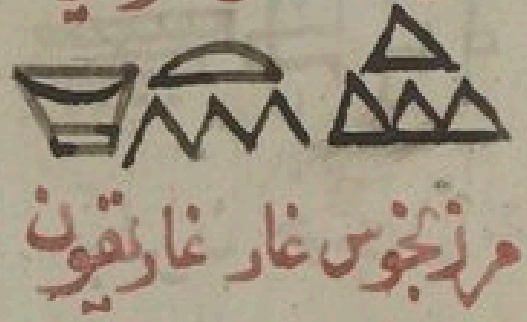 مرزنجوس غار غاريقون